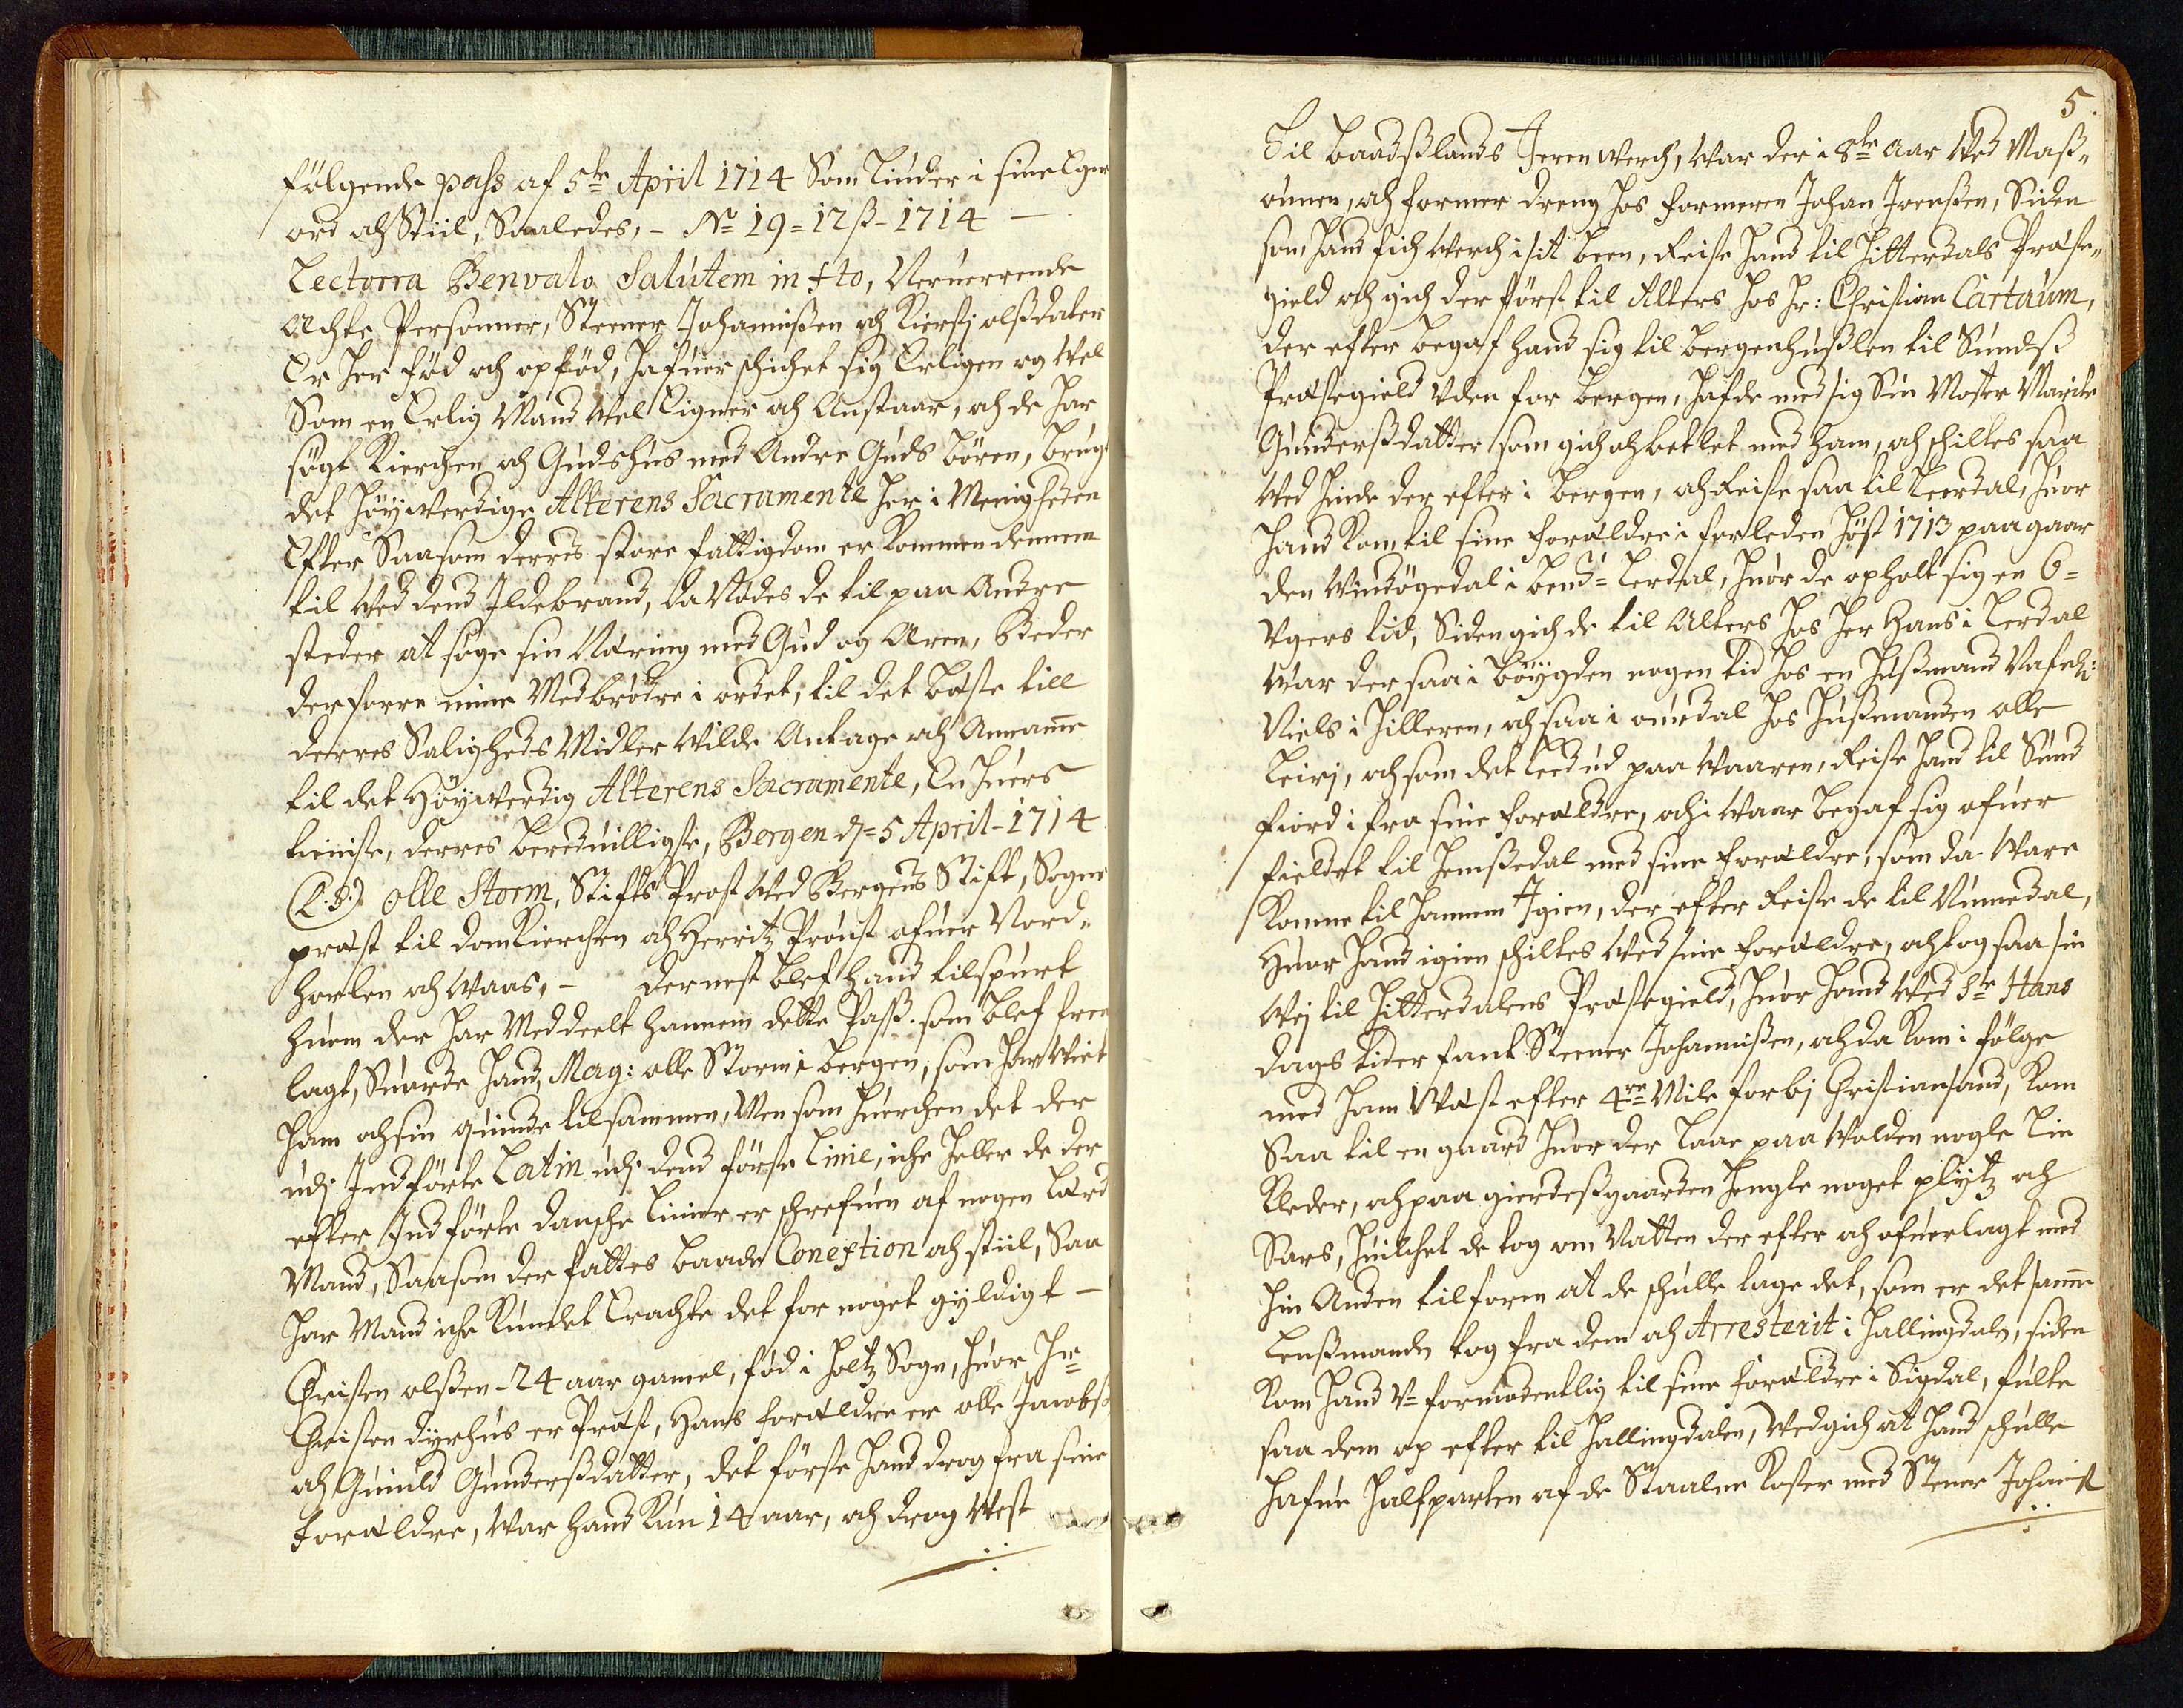 følgende pass af 5te April 1714 Som Liuder i sine Egne
ord och Stiil, Saaledes, - No 19 = 12 ß - 1714 —
Lectorra Benvalo Salutem in xto, Nerverrende
Achte Personner, Steener Johannißen och Kiersti olßdater
Er her fød och opfød, hafuer schichet sig Erligen og Vel
Som en Erlig Mand Vel Eigner och Anstaar, och de har
søgt Kierchen och Gudshus med Andre Guds Børen, brugt
det høyverdige Alterens Sacramente her i Menigheden
Efter Saasom derris store fattigdom er Kommen dennem
til Ved dend Ildebrand, da Nødes de til paa Andre
steder at søge sin Næring med Gud og Æren, Beder
derforre mine Medbrødre i ordet, til det bæste till
derres Saligheds Midler Vilde Antage och Annamme
til det Høyverdig Alterens Sacramente, En huers
tieniste, derres beredvilligste, Bergen d = 5 April - 1714
(L.S.) Olle Storm, Stifts Prost Ved Bergens Stift, Sogne
præst til domKierchen och Herritz Proust ofuer Nord-
horlen och Waas, - dernest blef hand tilspurt
huem der har Meddeelt hannem dette Pass. som blef frem
lagt, Suarde hand, Mag: olle Storm i bergen, som har Viet
ham och sin quinde tilsammen, Men som huerchen det der
udj Indførte Latin udj dend første Linie, iche heller de der
efter Indførte Dansche Linier er schrefuen af nogen Lærd
Mand, Saasom der fattes baade Coneption och stiil, Saa
har Mand iche Kundet Eracte det for noget gyldigt —
Christen olßen - 24 aar gamel, fød i holtz Sogn, huor Hr
Christen dyrhus er Præst, Hans foræeldre er olle Jacobß:
och Gunild Gunderßdatter, det første hand drog fra sine
forældre, War hand Kun 14 aar, och drog Vest
5.
Til baadßlands Jeren Werch, War der i 8te aar Ved Maß-
ounen, och former dreng hos formeren Johan Joenßen, Siden
som hand fich Werch i sit been, Reiste hand til Hitterdals Præste-
gield och gich der først til Alters hos Hr: Christian Cartaum,
der efter begaf hand sig til bergenhußlen til Sundß
Præstegield Uden for Bergen, hafde med sig Sin Moster Marite
Gunderßdatter som gich och betlet med ham, och schiltes saa
Ved hinde der efter i Bergen, och Reiste saa til Leerdal, huor
hand Kom til sine forældre i forleden høst 1713 paa gaar
den Windøgedal i bend = Lerdal, huor de opholt sig en 6 =
Ugers tid, Siden gich de til Alters hos Her Hans i Lerdal
War der saa i bøygden nogen tid hos en Hußmand
Niels i Hilleren, och saa i ouredal hos Hußmanden olle
Leirj, och som det leed ud paa Waaren, Reiste hand til Sund
fiord i fra sine forældre, och i Waar begaf sig ofuer
fieldet til Hemßedal med sine forældre, som da Ware
Komne til hannem Igien, der efter Reiste de til Numedal,
Huor hand igien schiltes Ved sine forældre, och tog saa sin
Wej til Hitterdalens Præstegield, huor hand Ved St Hans
dags tider fant Steener Johannißen, och da Kom i følge
med ham Wæst efter 4re Mile forbj Christiansand, Kom
Saa til en gaard huor der Laae paa Wolden nogle Lin
Kleder, och paa gierdeßgaarden hengte noget plytz och
Sars, huilchet de tog om Natten der efter och ofuerlagt med
hin Anden tilforen at de schulle tage det, som er det samme
Lenßmanden tog fra dem och Arresterit i Hallingdalen, siden
Kom hand U-formodentlig til sine forældre i Sigdal, fulte
saa dem op efter til Hallingdalen, Vedgich at hand schulle
hafue halfparten af de Staalne Koster med Stener Johanß